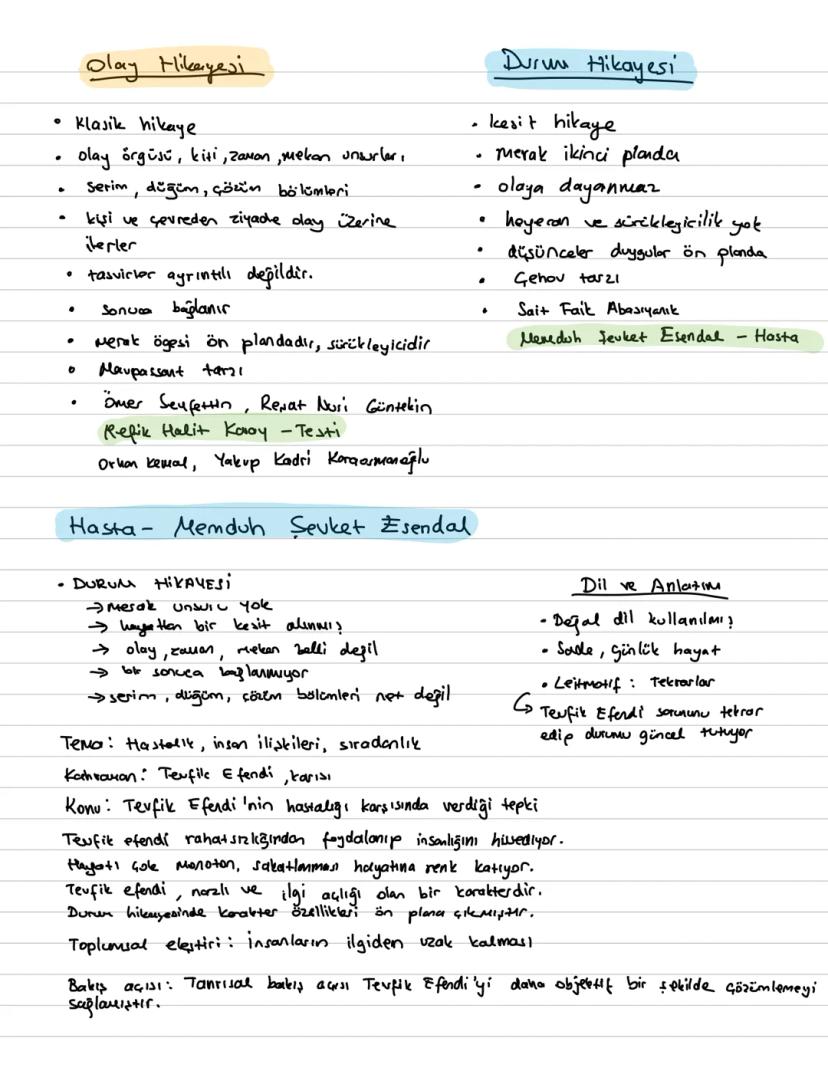 Olay Hikayesi
• Klasik hikaye
• olay örgüsü, kişi, zaman, mekan unsurları
• Serim, düğüm, çözüm bölümleri
• kişi ve çevreden ziyade olay üzerine
ilerler
• tasvirler ayrıntılı değildir.
• sonuca bağlanır
• merak ögesi ön plandadır, sürükleyicidir
• Maupassant tarzı
• Ömer Seyfettin, Reşat Nuri Güntekin
Refik Halit Karay - Testi
Orhan Kemal, Yakup Kadri Karaosmanoğlu
Durum Hikayesi
• kesit hikaye
• merak ikinci planda
• olaya dayanmaz
• heyecan ve sürükleyicilik yok
• düşünceler duygular ön planda
• Çehov tarzı
• Sait Faik Abasıyanık
Memduh Şevket Esendal - Hasta
Hasta - Memduh Şevket Esendal
• DURUM HİKAYESİ
→ merak unsuru yok
→ hayattan bir kesit alınmış
→ olay, zaman, mekan belli değil
→ bir sonuca bağlanmıyor
→ serim, düğüm, çözüm bölümleri net değil
Dil ve Anlatım
• Doğal dil kullanılmış
• Sade, günlük hayat
• Leitmotif: Tekrarlar
Tevfik Efendi sorununu tekrar
edip durumu güncel tutuyor
Tema: Hastalık, insan ilişkileri, sıradanlık
Kahraman: Tevfik Efendi, karısı
Konu: Tevfik Efendi'nin hastalığı karşısında verdiği tepki
Tevfik efendi rahatsızlığından faydalanıp insanlığını hissediyor.
Hayatı çok monoton, sakatlanması hayatına renk katıyor.
Tevfik efendi, nazlı ve ilgi açlığı olan bir karakterdir.
Durum hikayesinde karakter özellikleri ön plana çıkmıştır.
Toplumsal eleştiri: İnsanların ilgiden uzak kalması
Bakış açısı: Tanrısal bakış açısı Tevfik Efendi'yi daha objektif bir şekilde çözümlemeyi
sağlamıştır.